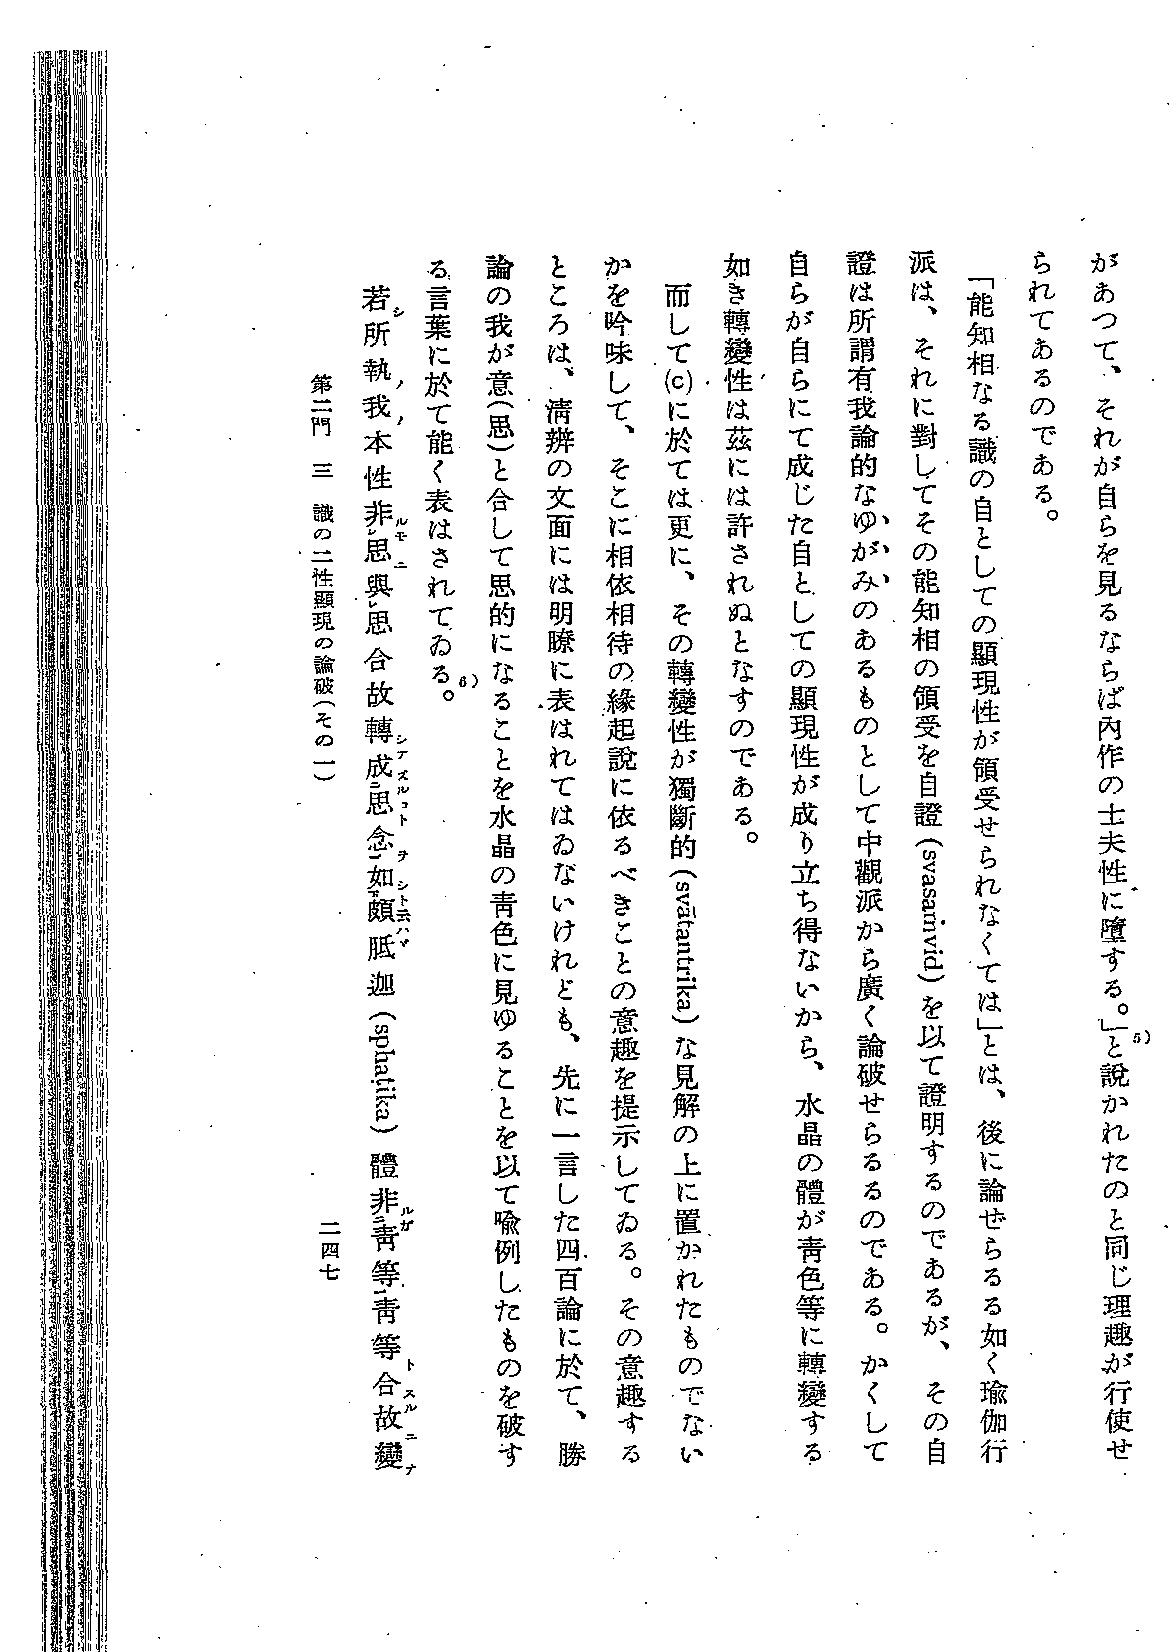 があつて、それが自らを見るならば內作の士夫性に墮する。」と說かれたのと同じ理趣が行使せ
られてあるのである。
「能知相なる識の自としての顯現性が領受せられなくては」とは、後に論ぜらるる如く瑜伽行
派は、それに對してその能知相の領受を自證(svasaṁvid)を以て證明するのであるが、その自
證は所謂有我論的なゆがみのあるものとして中觀派から廣く論破せらるるのである。かくして
自らが自らにて成じた自としての顯現性が成り立ち得ないから、水晶の體が靑色等に轉變する
如き轉變性は茲には許されぬとなすのである。
而して(c)に於ては更に、その轉變性が獨斷的(svātantrika)な見解の上に置かれたものでない
かを吟味して、そこに相依相待の緣起說に依るべきことの意趣を提示してゐる。その意趣する
ところは、淸辨の文面には明瞭に表はれてはゐないけれども、先に一言した四百論に於て、勝
論の我が意(思)と合して思的になることを水晶の靑色に見ゆることを以て喩例したものを破す
る言葉に於て能く表はされてゐる。6)
若所執我本性非思與思合故轉成思念如頗胝迦(sphaṭika)體非靑等靑等合故變
第二門 三 識の二性顯現の論破(その一)
二四七